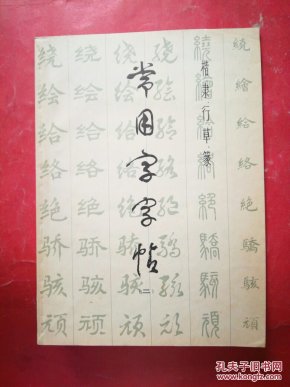 繞繪給絡絶驕駭頑
楷隶行草篆
常用字字帖
二
绕绘给络绝骄骇顽
绕绘给络绝骄骇顽
绕绘给络绝骄骇顽
孔夫子旧书网